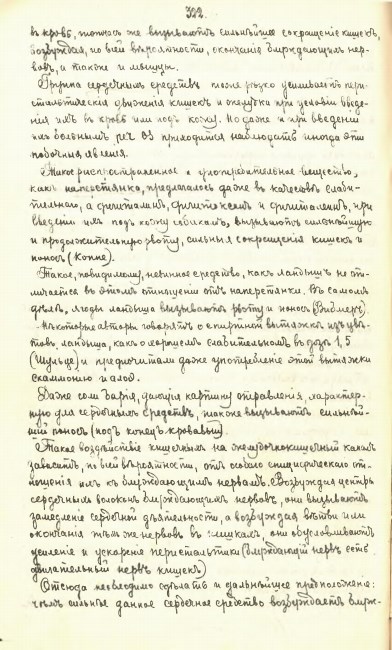 322.
въ кровь, тотчасъ же вызываютъ сильнѣйшее сокращеніе кишекъ,
возбуждая, по всей вѣроятности, окончанія блуждающихъ нер-
вовъ, а также и мышцы.
Группа сердечныхъ средствъ тоже рѣзко усиливаетъ пери-
стальтическія движенія кишекъ и желудка при условіи введе-
нія ихъ въ кровь или подъ кожу. Но даже и при введеніи
ихъ больнымъ per os приходится наблюдать иногда эти
побочныя явленія.
Такое распространенное и употребительное вещество,
какъ наперстянка, предлагалось даже въ качествѣ слаби-
тельнаго, а дигиталинъ, дигитоксинъ и дигиталеинъ, при
введеніи ихъ подъ кожу собакамъ, вызываютъ сильнѣйшую
и продолжительную рвоту, сильныя сокращенія кишекъ и
поносъ (Коппе).
Такое, повидимому, невинное средство, какъ ландышъ не от-
личается въ этомъ отношеніи отъ наперстянки. Въ самомъ
дѣлѣ, ягоды ландыша вызываютъ рвоту и поносъ
Нѣкоторые авторы говорятъ о спиртной вытяжкѣ изъ цвѣ-
товъ ландыша, какъ о хорошемъ слабительномъ въ дозѣ 1,5
(Шульце) и предпочитали даже употребленіе этой вытяжки
скаммонію и алоэ.
Даже соли барія, дающія картину отравленія, характер-
ную для сердечныхъ средствъ, также вызываютъ сильнѣй-
шій поносъ (подъ конецъ кровавый).
Такое воздѣйствіе на желудочнокишечный каналъ
зависитъ, по всей вѣроятности, отъ особаго специфическаго от-
ношенія ихъ къ блуждающимъ нервамъ. Возбуждая центры
сердечныхъ волоконъ блуждающихъ нервовъ, они вызываютъ
замедленіе сердечной дѣятельности, а возбуждая вѣтви или
окончанія тѣхъ же нервовъ въ кишкахъ, они обусловливаютъ
усиленіе и ускореніе перистальтики (блуждающій нервъ есть
двигательный нервъ кишекъ)
Отсюда необходимо сдѣлать и дальнѣйшее предположеніе:
чѣмъ сильнѣе данное сердечное средство возбуждаетъ блуж-